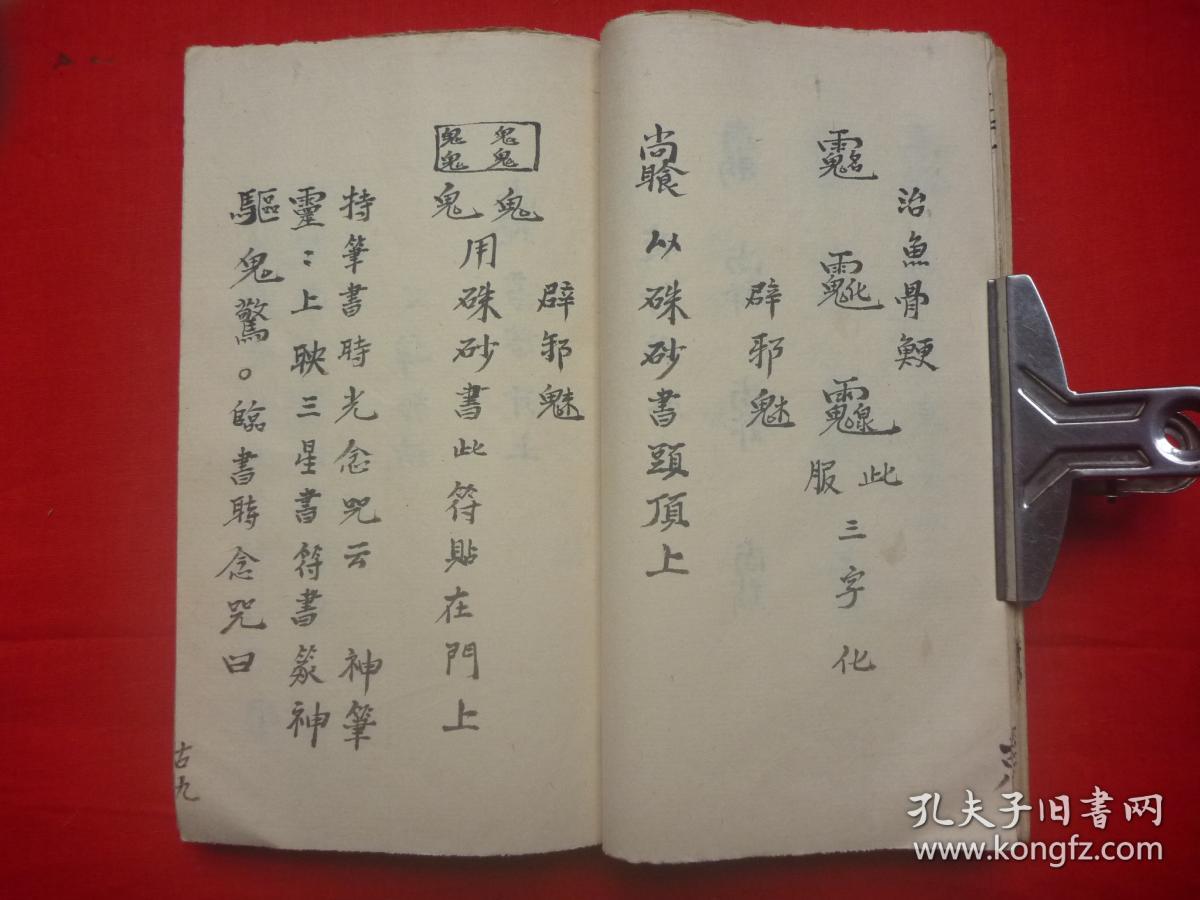 治魚骨鯁
此三字化
服
辟邪魅
以硃砂書頭頂上
辟邪魅
鬼鬼
鬼鬼
鬼鬼用硃砂書此符貼在門上
持筆書時光念咒云 神筆
靈〻上映三星書符書篆神
驅鬼驚。臨書時念咒曰
古九
孔夫子旧书网
www.kongfz.com